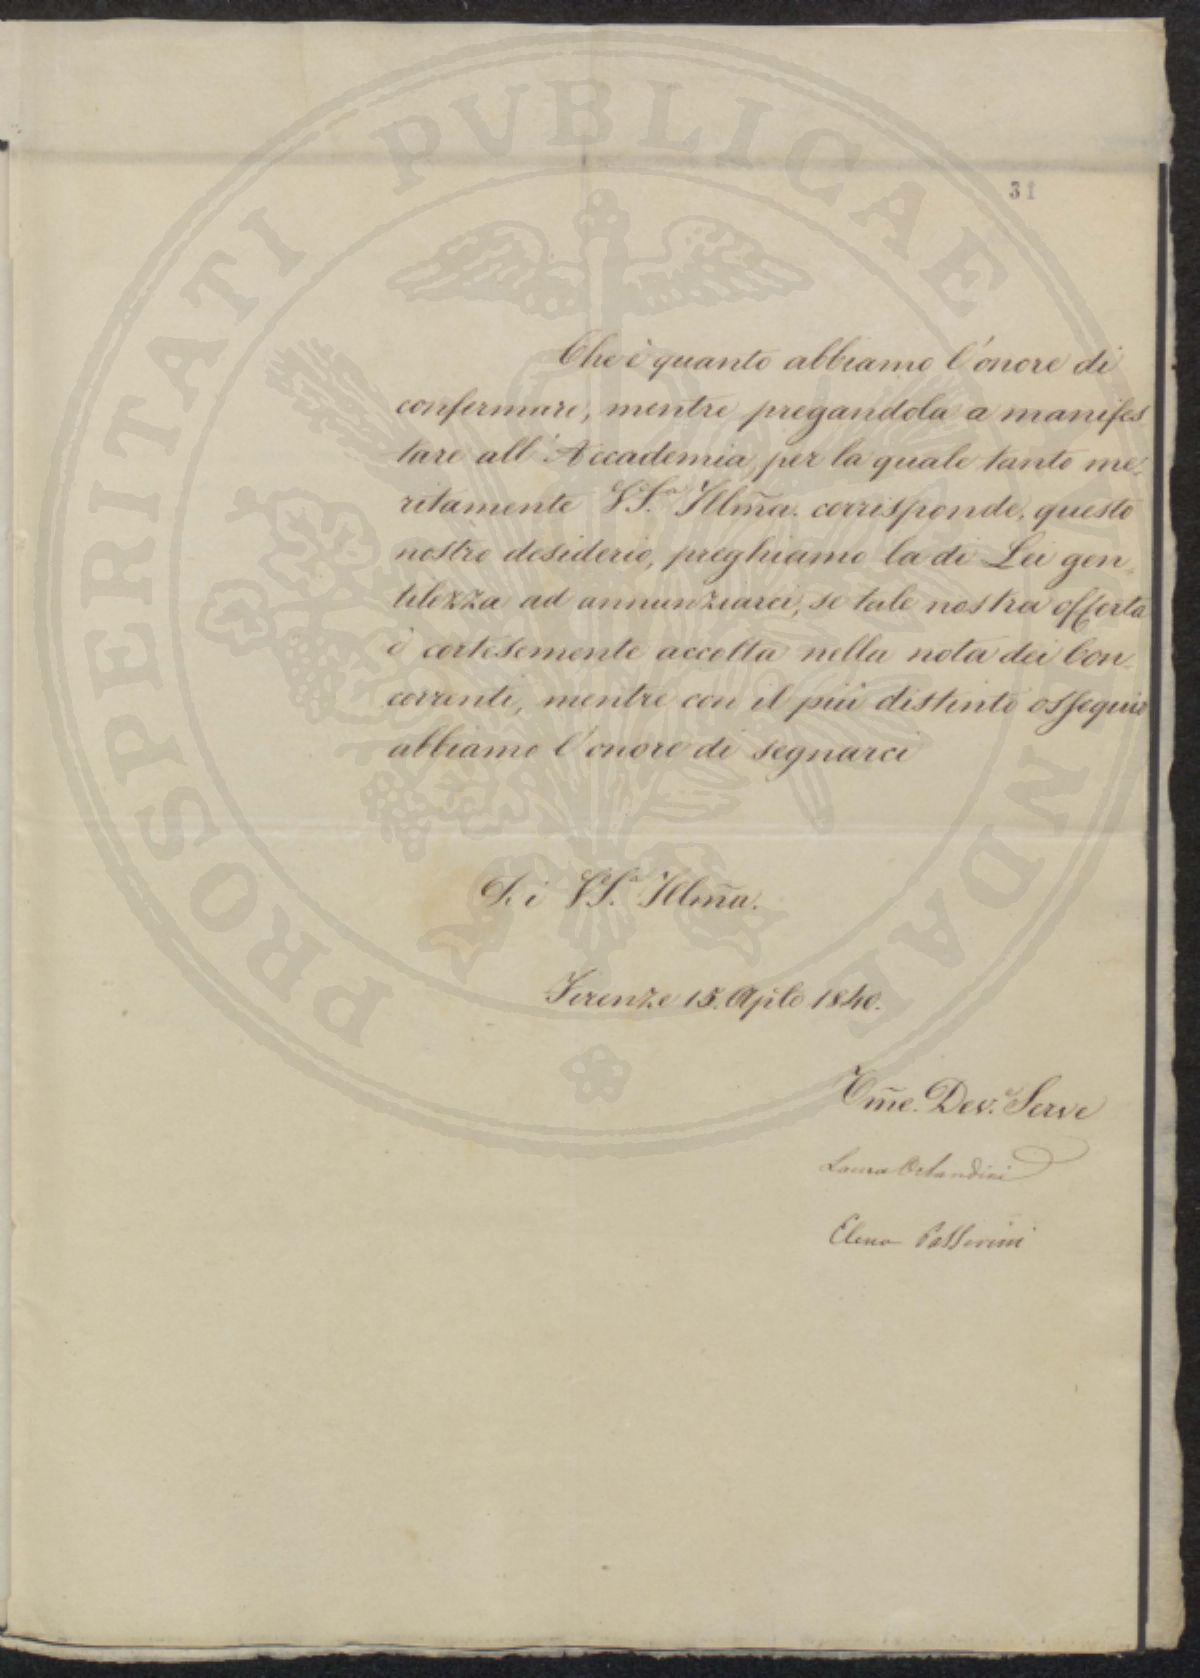 PROSPERITATI PVBLICAE AVGENDAE
31
Che è quanto abbiamo l'onore di
confermare, mentre pregandola a manifes
tare all'Accademia, per la quale tanto me-
ritamente V.S.a Illma. corrisponde, questo
nostro desiderio, preghiamo la di Lei gen-
tilezza ad annunziarci, se tale nostra offerta
è cortesemente accolta nella nota dei Con-
correnti, mentre con il più distinto ossequio
abbiamo l'onore di segnarci
Di V.S.a Illma.
Firenze 15. Aple 1840.
Ume. Dev.e Serve
Laura Orlandini
Elena Passerini